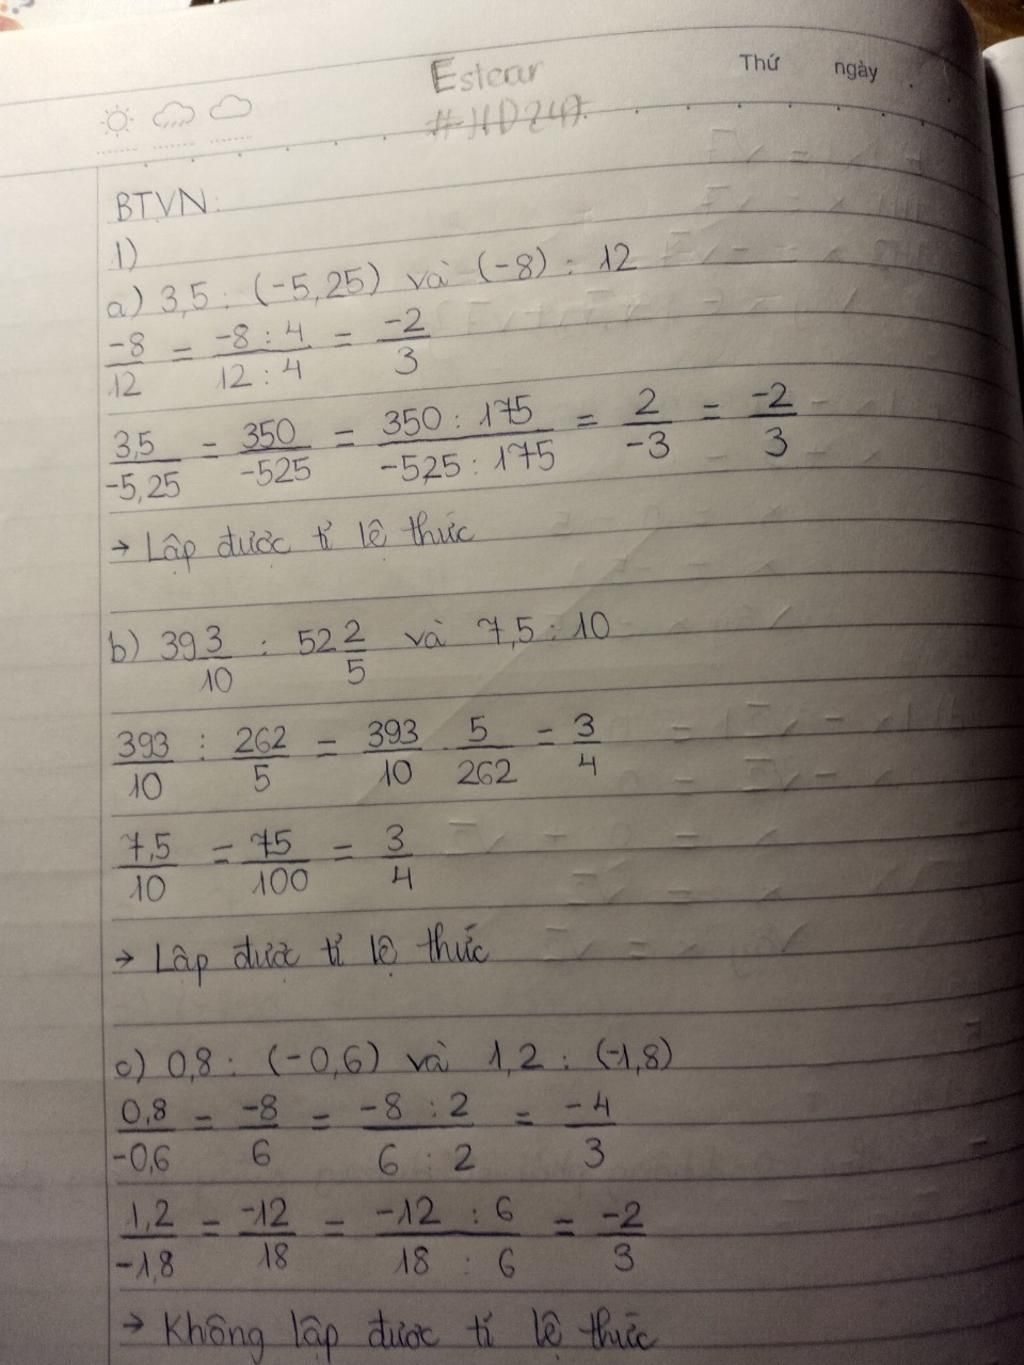 Estear
#HD247
Thứ ngày
BTVN:
1)
a) 3,5 : (-5,25) và (-8) : 12
-8/12 = -8 : 4/12 : 4 = -2/3
3,5/-5,25 = 350/-525 = 350 : 175/-525 : 175 = 2/-3 = -2/3
→ Lập được tỉ lệ thức
b) 39 3/10 : 52 2/5 và 7,5 : 10
393/10 : 262/5 = 393/10 . 5/262 = 3/4
7,5/10 = 75/100 = 3/4
→ Lập được tỉ lệ thức
c) 0,8 : (-0,6) và 1,2 : (-1,8)
0,8/-0,6 = -8/6 = -8 : 2/6 : 2 = -4/3
1,2/-1,8 = -12/18 = -12 : 6/18 : 6 = -2/3
→ Không lập được tỉ lệ thức